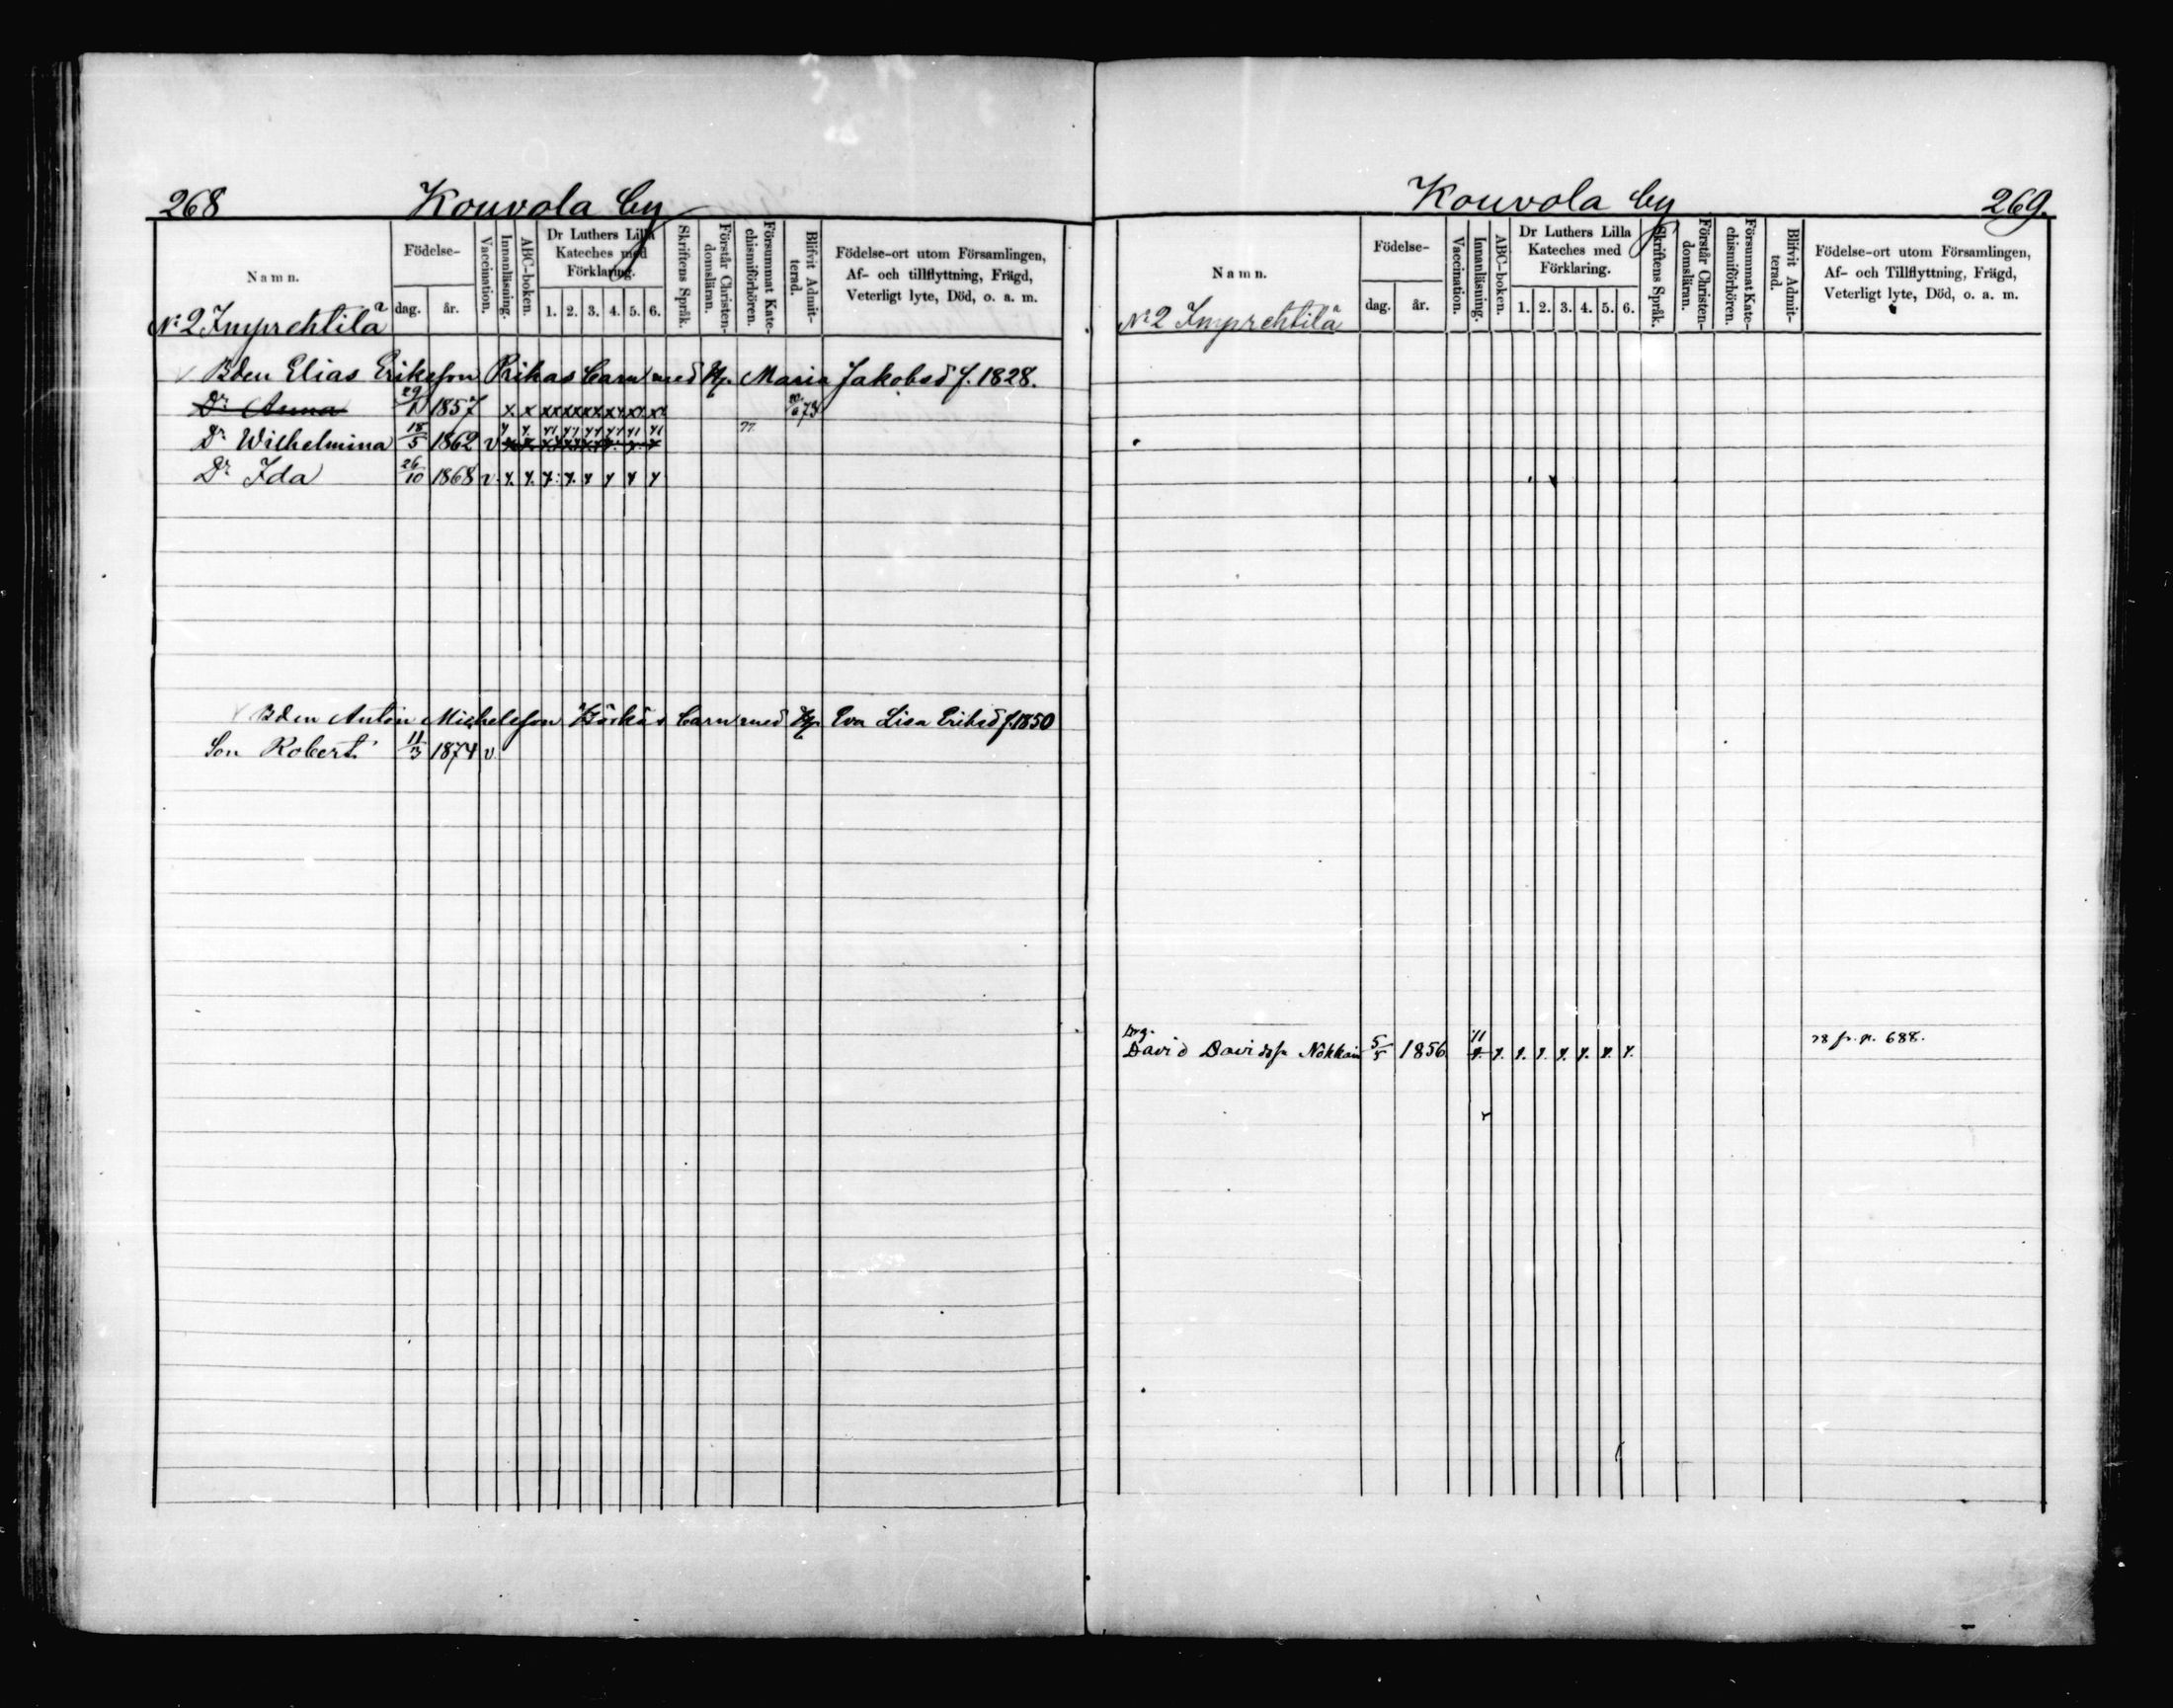 268 Kouvola by
Namn. Födelse- dag. år. Vaccination. Innanläsning. ABC-boken. Dr Luthers Lilla Kateches med Förklaring. 1. 2. 3. 4. 5. 6. Skriftens Språk. Förstår Christen-domsläran. Försummat Kate-chismiförhören. Blifvit Admit-terad. Födelse-ort utom Församlingen, Af- och tillflyttning, Frägd, Veterligt lyte, Död, o. a. m.
No 2 Imprehtilä
Bden Elias Eriksson Rikas barn med Hu. Maria Jakobsd f. 1828.
Dr Anna 29/1 1857 x x xx xx xx xx xx xx 73
Dr Wilhelmina 18/5 1862 v 77
Dr Ida 26/10 1868 v
Bden Anton Michelsson barn med Hu Eva Lisa Eriksd f. 1850
Son Robert 11/3 1874 v.
Kouvola by 269.
Namn. Födelse- dag. år. Vaccination. Innanläsning. ABC-boken. Dr Luthers Lilla Kateches med Förklaring. 1. 2. 3. 4. 5. 6. Skriftens Språk. Förstår Christen-domsläran. Försummat Kate-chismiförhören. Blifvit Admit-terad. Födelse-ort utom Församlingen, Af- och Tillflyttning, Frägd, Veterligt lyte, Död, o. a. m.
No 2 Imprehtilä
Drg.
David Davidss. 5/5 1856 78 fr. p. 688.